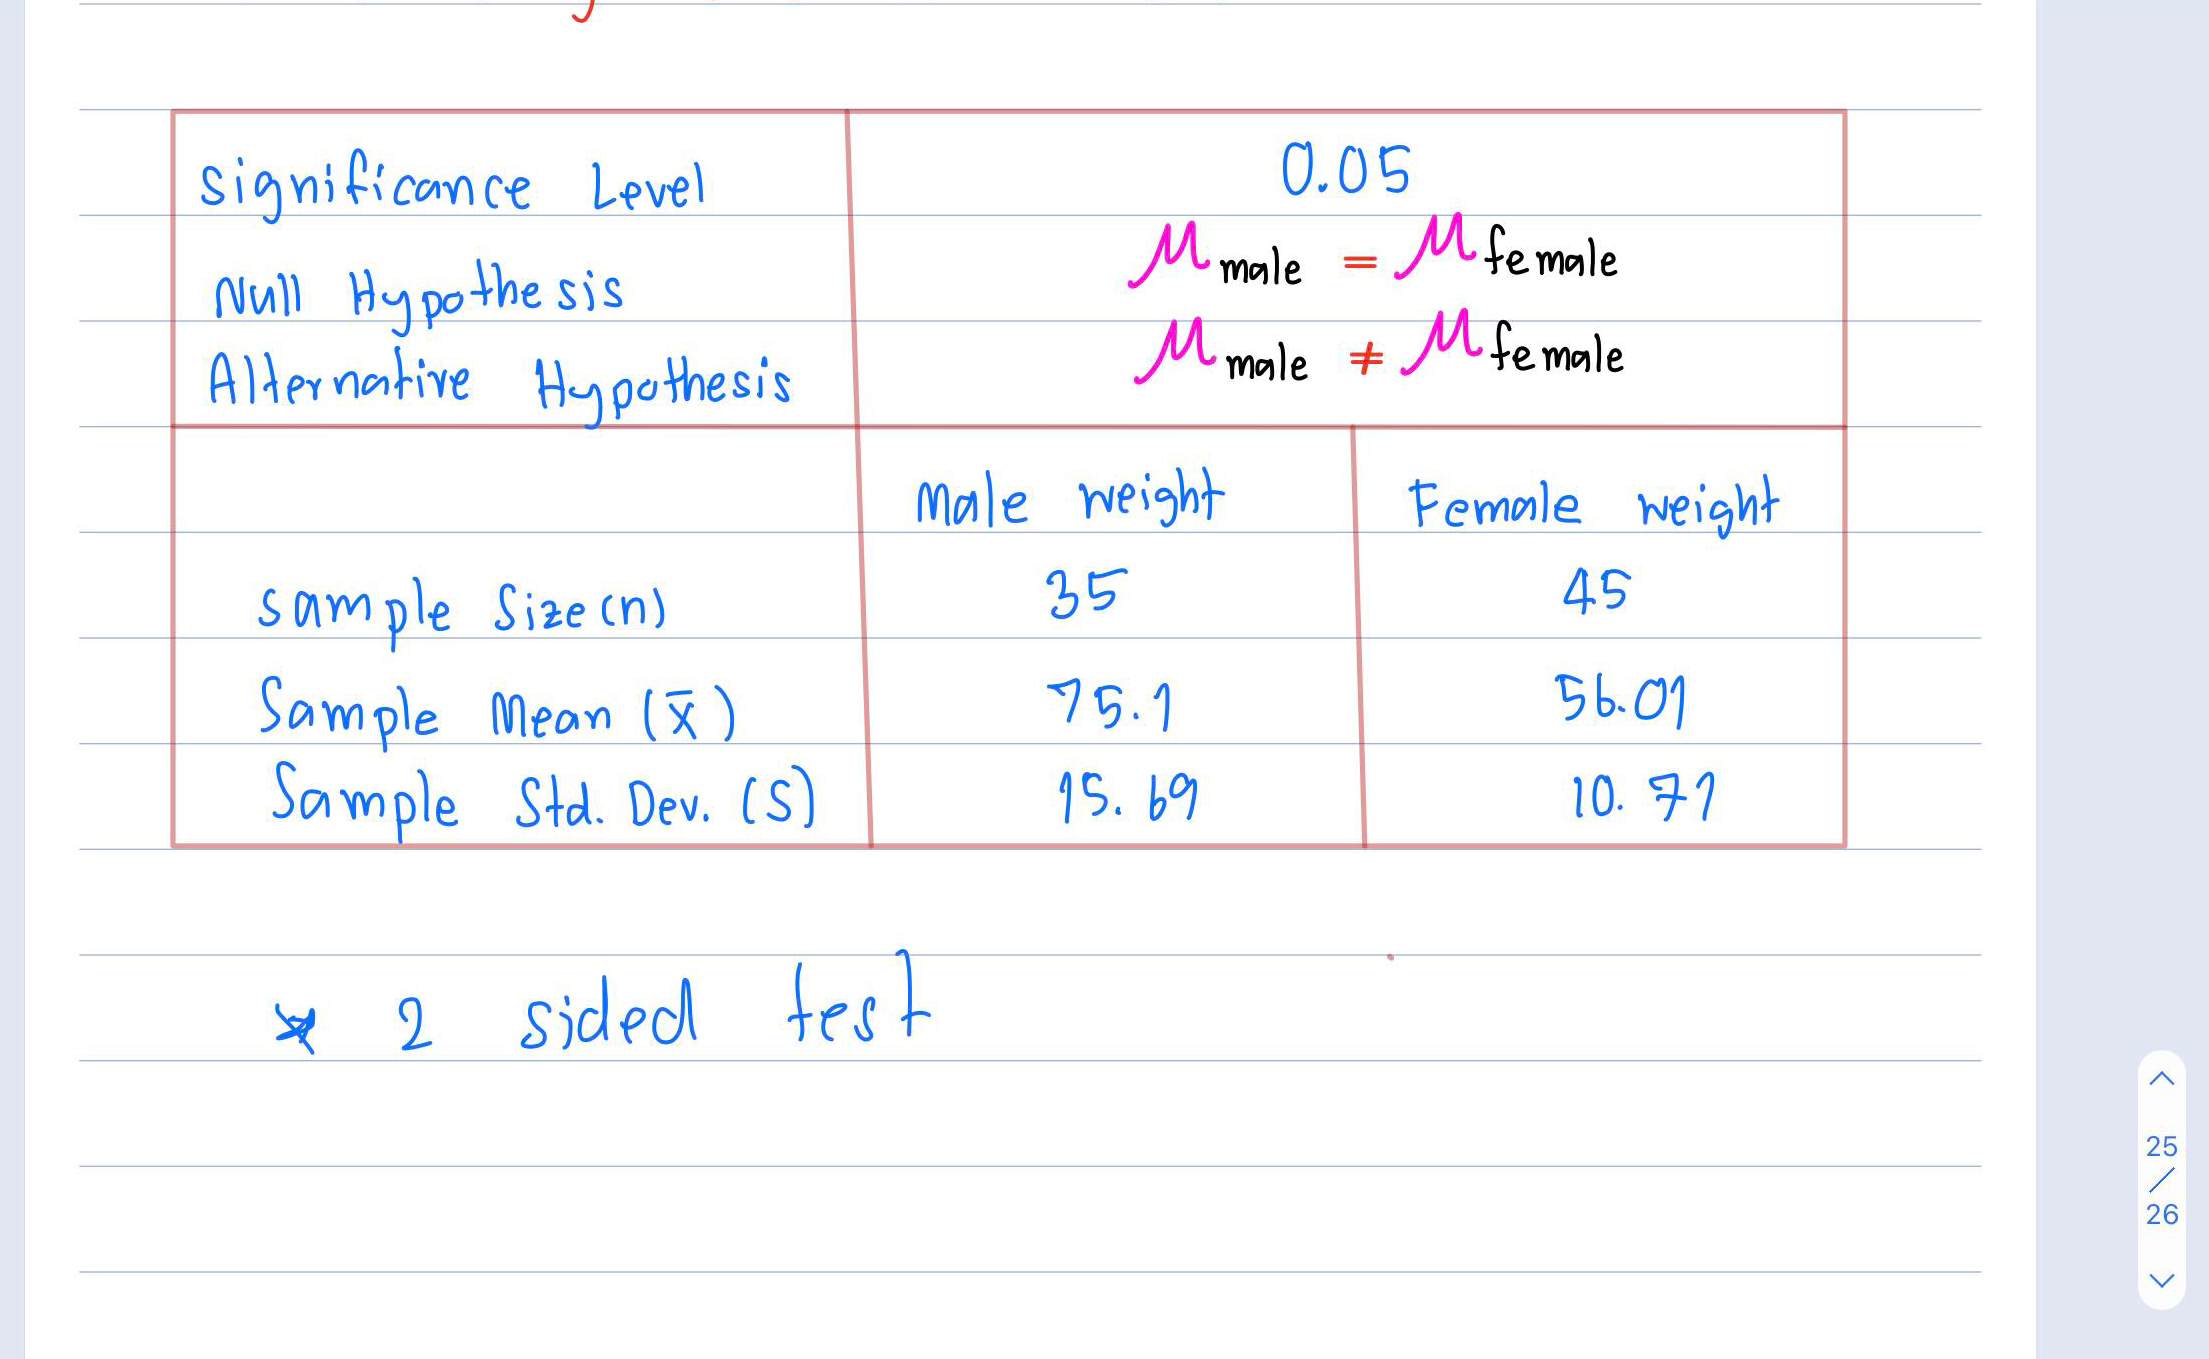 Significance Level 0.05
Null Hypothesis μ male = μ female
Alternative Hypothesis μ male ≠ μ female
Male weight Female weight
Sample Size (n) 35 45
Sample Mean (x̄) 75.1 56.01
Sample Std. Dev. (S) 15.69 10.71
* 2 sided test
25
/
26